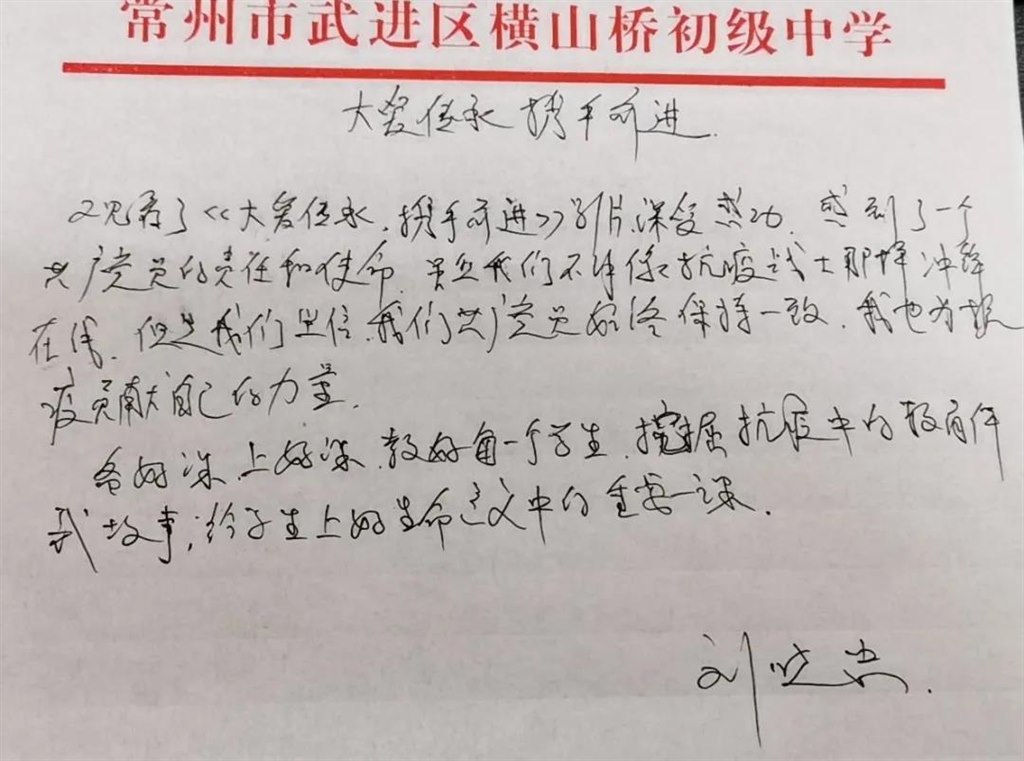 常州市武进区横山桥初级中学
大爱传承 携手前进.
观看了《大爱传承.携手前进》影片,深受感动.感到了一个
共产党员的责任和使命.虽然我们不能像抗疫战士那样冲锋
在线.但是我们坚信.我们共产党员始终保持一致.我也为抗
疫贡献自己的力量.
备好课.上好课.教好每一个学生.挖掘抗疫中的教育
故事,给学生上好生命意义中的重要一课.
刘